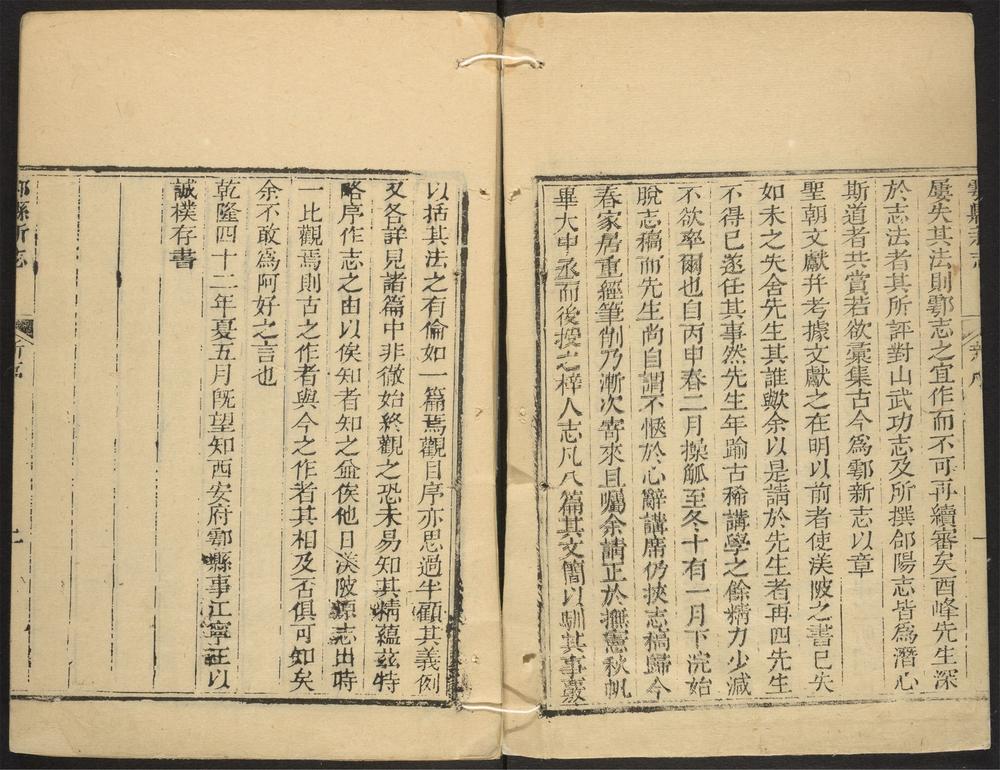 屢失其法則鄠志之宜作而不可再續審矣酉峰先生深
於志法者其所評對山武功志及所撰郃陽志皆爲潛心
斯道者共賞若欲彙集古今爲鄠新志以章
聖朝文獻幷考據文獻之在明以前者使渼陂之書已失
如未之失舍先生其誰歟余以是請於先生者再四先生
不得已遂任其事然先生年踰古稀講學之餘精力少減
不欲率爾也自丙申春二月操觚至冬十有一月下浣始
脫志稿而先生尚自謂不愜於心辭講席仍挾志稿歸今
春家居重經筆削乃漸次寄來且囑余請正於撫憲秋帆
畢大中丞而後授之梓人志凡八篇其文簡以馴其事覈
以括其法之有倫如一篇焉觀目序亦思過半顧其義例
又各詳見諸篇中非徹始終觀之恐未易知其精蘊茲特
略序作志之由以俟知者知之並俟他日渼陂原志出時
一比觀焉則古之作者與今之作者其相及否俱可知矣
余不敢爲阿好之言也
乾隆四十二年夏五月旣望知西安府鄠縣事江寧汪以
誠樸存書
鄠縣新志
新序
二